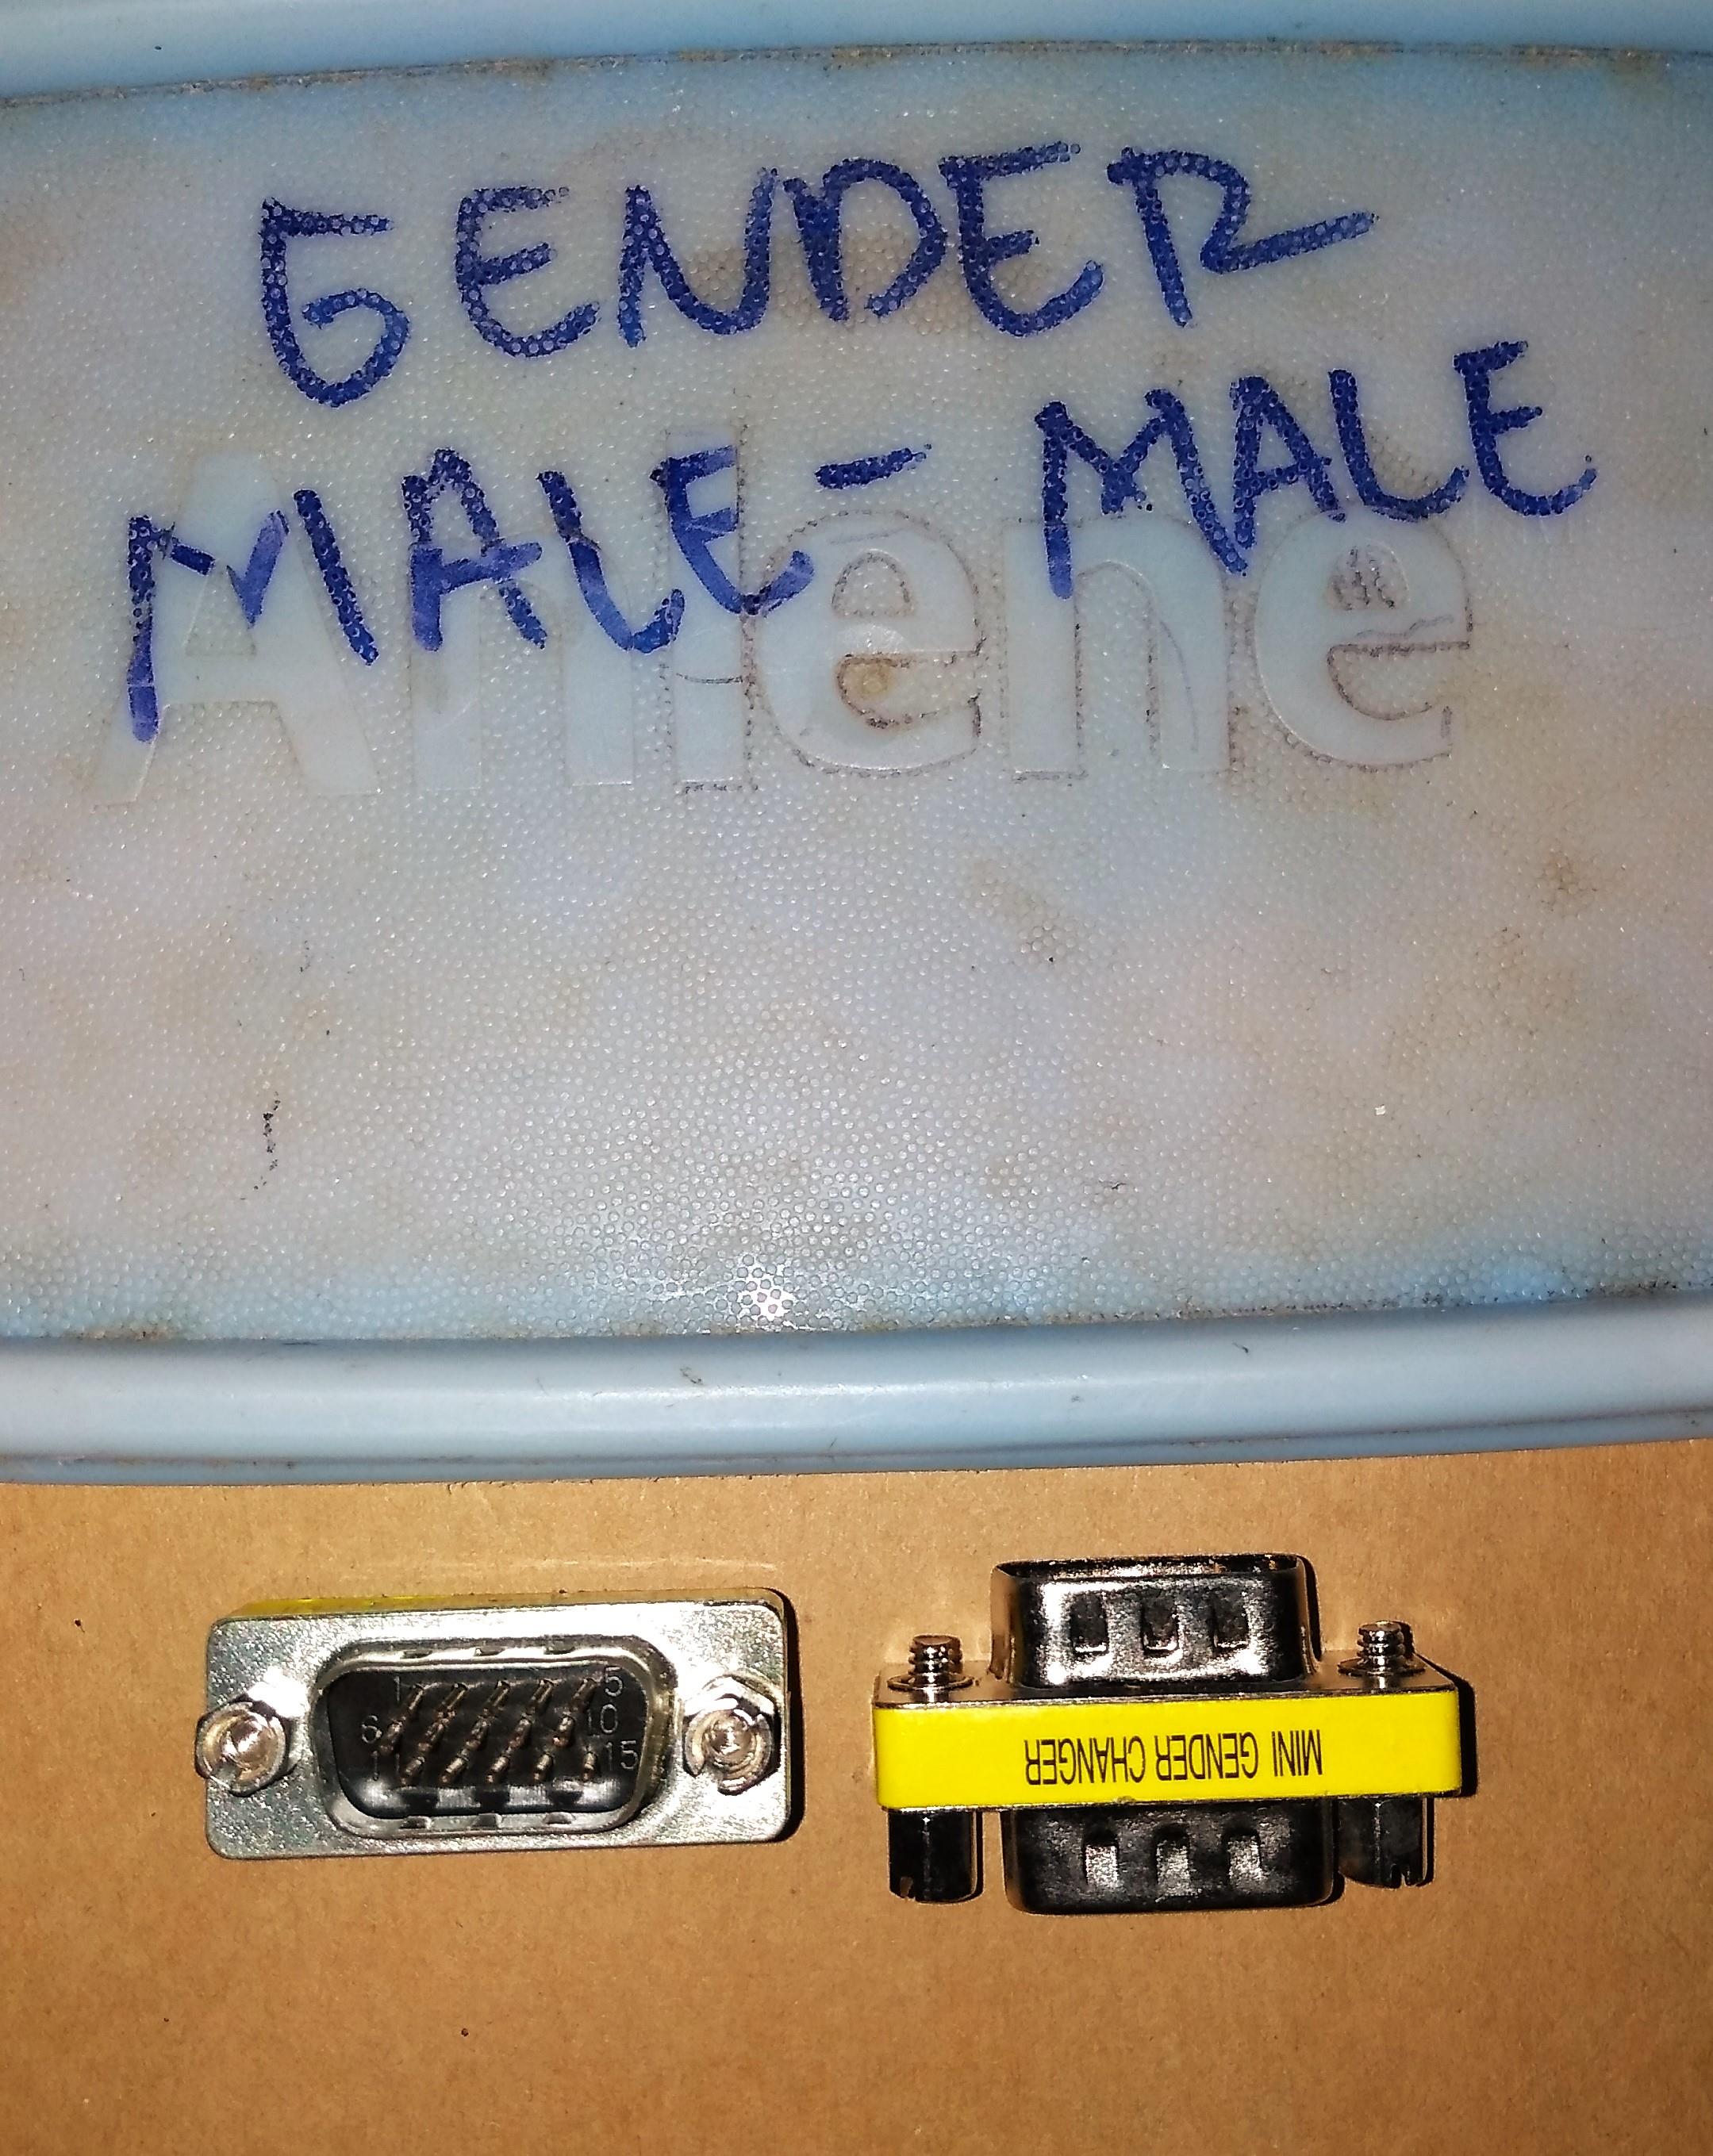 GENDER
MALE - MALE
Anlene
1 5
6 10
11 15
MINI GENDER CHANGER